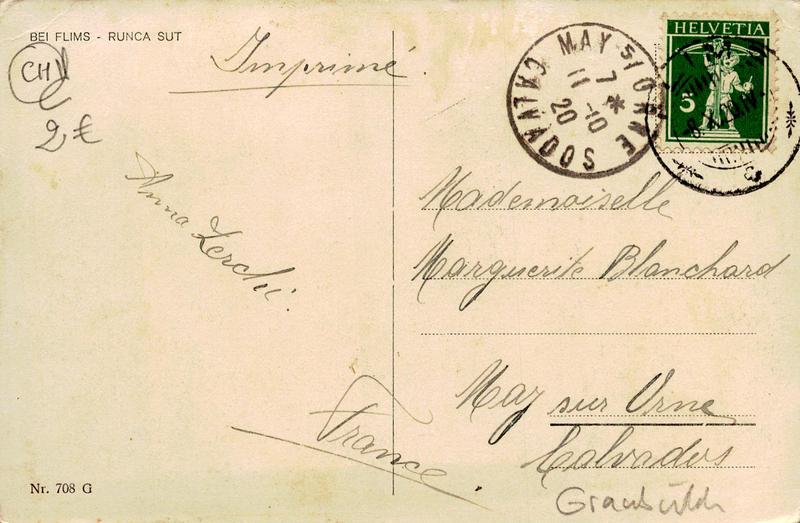 BEI FLIMS - RUNCA SUT
CH
2 €
Imprimé.
MAY S/ ORNE
CALVADOS
7 *
11 -10
20
HELVETIA
5
-8.X.20.IV-
Anna Lerchi.
Mademoiselle
Marguerite Blanchard
May sur Orne
Calvados
France
Nr. 708 G